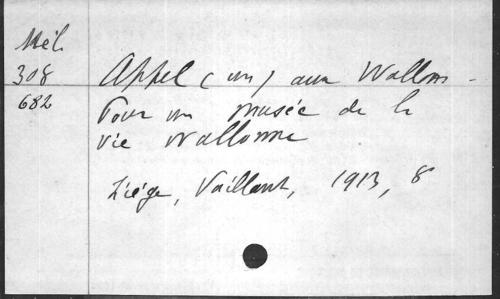 Mél.
308
682
Appel (un) aux Wallons.
Pour un musée de la
vie wallonne
Liége, Vaillant, 1913, 8°